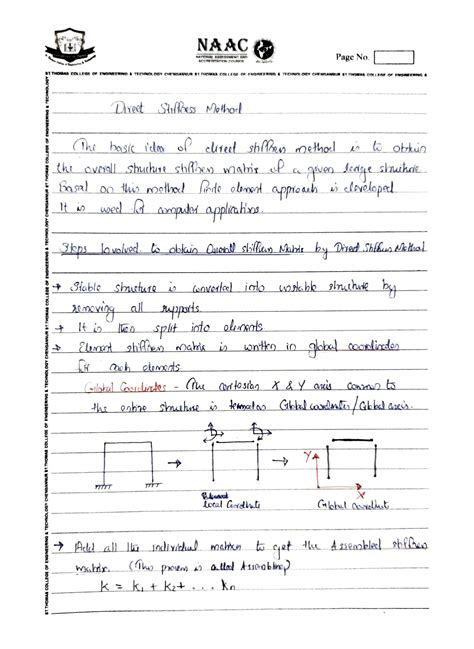 NAAC
NATIONAL ASSESSMENT AND
ACCREDITATION COUNCIL
Page No.
ST THOMAS COLLEGE OF ENGINEERING & TECHNOLOGY CHENGANNUR ST THOMAS COLLEGE OF ENGINEERING & TECHNOLOGY CHENGANNUR ST THOMAS COLLEGE OF ENGINEERING &
Direct Stiffness Method
The basic idea of direct stiffness method is to obtain
the overall structure stiffness matrix of a given large structure.
Based on this method finite element approach is developed.
It is used for computer applications.
Steps Involved to obtain Overall stiffness Matrix by Direct Stiffness Method
→ Stable structure is converted into unstable structure by
removing all supports.
→ It is then split into elements
→ Element stiffness matrix is written in global coordinates
for each elements.
Global Coordinates - The cartesian X & Y axis common to
the entire structure is termed as Global coordinates/Global axis.
Y
X
Local Coordinate
Global coordinate
→ Add all the individual matrices to get the Assembled stiffness
matrix. (This process is called Assembling)
K = K1 + K2 + ... Kn